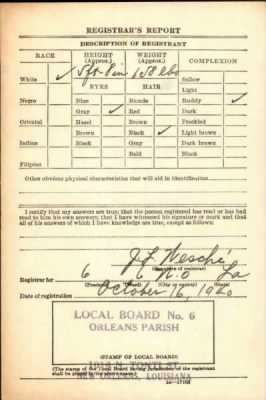 REGISTRAR'S REPORT
DESCRIPTION OF REGISTRANT
RACE HEIGHT (Approx.) WEIGHT (Approx.) COMPLEXION
White ✓ 5 ft 8 in 158 lbs Sallow
EYES HAIR Light
Negro Blue Blonde Ruddy ✓
Gray ✓ Red Dark
Oriental Hazel Brown Freckled
Brown Black ✓ Light brown
Indian Black Gray Dark brown
Bald Black
Filipino
Other obvious physical characteristics that will aid in identification
I certify that my answers are true; that the person registered has read or has had
read to him his own answers; that I have witnessed his signature or mark and that
all of his answers of which I have knowledge are true, except as follows:
J L Wesché
(Signature of registrar)
Registrar for 6 6 N.O La
(Precinct) (Ward) (City) (State)
Date of registration October 16, 1940
LOCAL BOARD No. 6
ORLEANS PARISH
(STAMP OF LOCAL BOARD)
NEW ORLEANS, LOUISIANA
(The stamp of the Local Board having jurisdiction of the registrant
shall be placed in the above space)